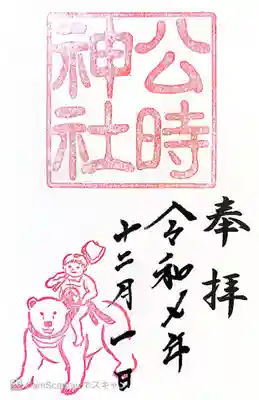 公時
神社
奉拝
令和 年
十二月一日
CamScannerでスキャン